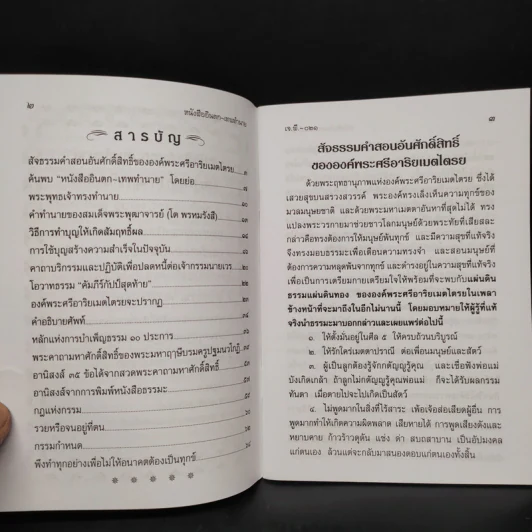 ๒
หนังสืออินตก-เทพทำนาย
สารบัญ
สัจธรรมคำสอนอันศักดิ์สิทธิ์ขององค์พระศรีอาริยเมตไตรย ๓
ค้นพบ "หนังสืออินตก-เทพทำนาย" โดยย่อ
พระพุทธเจ้าทรงทำนาย
คำทำนายของสมเด็จพระพุฒาจารย์ (โต พรหมรังสี)
วิธีการทำบุญให้เกิดสัมฤทธิ์ผล
การใช้บุญสร้างความสำเร็จในปัจจุบัน
คาถาบริกรรมและปฏิบัติเพื่อปลดหนี้ต่อเจ้ากรรมนายเวร
โอวาทธรรม "คัมภีร์กัปป์สุดท้าย"
องค์พระศรีอาริยเมตไตรยจะปรากฏ
คำอธิบายศัพท์
หลักแห่งการบำเพ็ญธรรม ๑๐ ประการ
พระคาถามหาศักดิ์สิทธิ์ของพระมหาฤาษีบรมครูปฐมนวโกฏิ
อานิสงส์ ๓๕ ข้อได้จากสวดพระคาถามหาศักดิ์สิทธิ์
อานิสงส์จากการพิมพ์หนังสือธรรมะ
กฎแห่งกรรม
รวยหรือจนอยู่ที่ตน
กรรมกำหนด
พึงทำทุกอย่างเพื่อไม่ให้อนาคตต้องเป็นทุกข์
๓
สัจธรรมคำสอนอันศักดิ์สิทธิ์
ขององค์พระศรีอาริยเมตไตรย
ด้วยพระฤทธานุภาพแห่งองค์พระศรีอาริยเมตไตรย ซึ่งได้
เสวยสุขบนสรวงสวรรค์ พระองค์ทรงเล็งเห็นความทุกข์ของ
มวลมนุษยชาติ และด้วยพระมหาเมตตาอันหาที่สุดไม่ได้ ทรง
แปลงพระวรกายมาช่วยชาวโลกมนุษย์ด้วยพระทัยที่เสียสละ
กล่าวคือทรงต้องการให้มนุษย์พ้นทุกข์ และมีความสุขที่แท้จริง
จึงทรงมอบธรรมะเพื่อเตือนความทรงจำ และสอนมนุษย์ที่
ต้องการความหลุดพ้นจากทุกข์ และดำรงอยู่ในความสุขที่แท้จริง
เพื่อเป็นการเตรียมกายเตรียมใจให้พร้อมที่จะพบกับแผ่นดิน
ธรรมแผ่นดินทอง ขององค์พระศรีอาริยเมตไตรยในเพลา
ข้างหน้าที่จะมาถึงในอีกไม่นานนี้ โดยมอบหมายให้ผู้รู้ที่แท้
จริงนำธรรมะมาบอกกล่าวและเผยแพร่ต่อไปนี้
๑. ให้ตั้งมั่นอยู่ในศีล ๕ ให้ครบถ้วนบริบูรณ์
๒. ให้รักใคร่เมตตาปรานี ต่อเพื่อนมนุษย์และสัตว์
๓. ผู้เป็นลูกต้องรู้จักกตัญญูรู้คุณ และเชื่อฟังพ่อแม่
บังเกิดเกล้า ถ้าลูกไม่กตัญญูรู้คุณพ่อแม่ ก็จะได้รับผลกรรม
ทันตา เมื่อตายไปจะไปเกิดเป็นสัตว์
๔. ไม่พูดมากในสิ่งที่ไร้สาระ เพ้อเจ้อส่อเสียดผู้อื่น การ
พูดมากทำให้เกิดความผิดพลาด เสียหายได้ การพูดเสียงดังและ
หยาบคาย ก้าวร้าวดุดัน แช่ง ด่า สบถสาบาน เป็นอัปมงคล
แก่ตนเอง ล้วนแต่จะกลับมาสนองตอบแก่ตนเองทั้งสิ้น